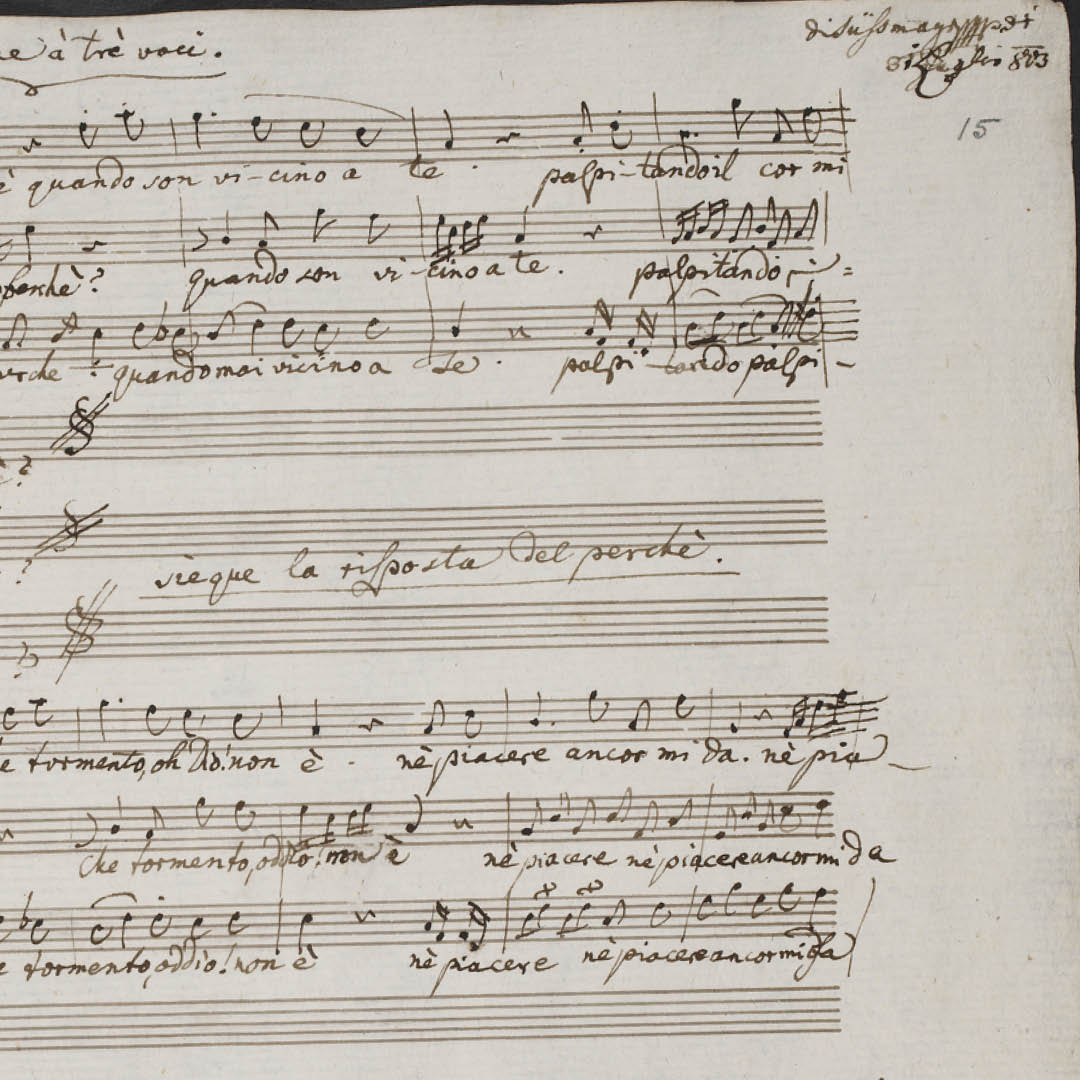 à trè voci.
803
15
è quando son vi-cino a te. palpi-tando il cor mi
perchè? quando son vi-cino a te. palpitando
quando mai vicino a te. palpi-tando palpi-
?
? sieque la risposta del perchè.
tormento, oh Dio! non è. nè piacere ancor mi da. nè pia
che tormento, oddio! non è nè piacere nè piacere ancor mi da
tormento, oddio! non è nè piacere nè piacere ancor mi da